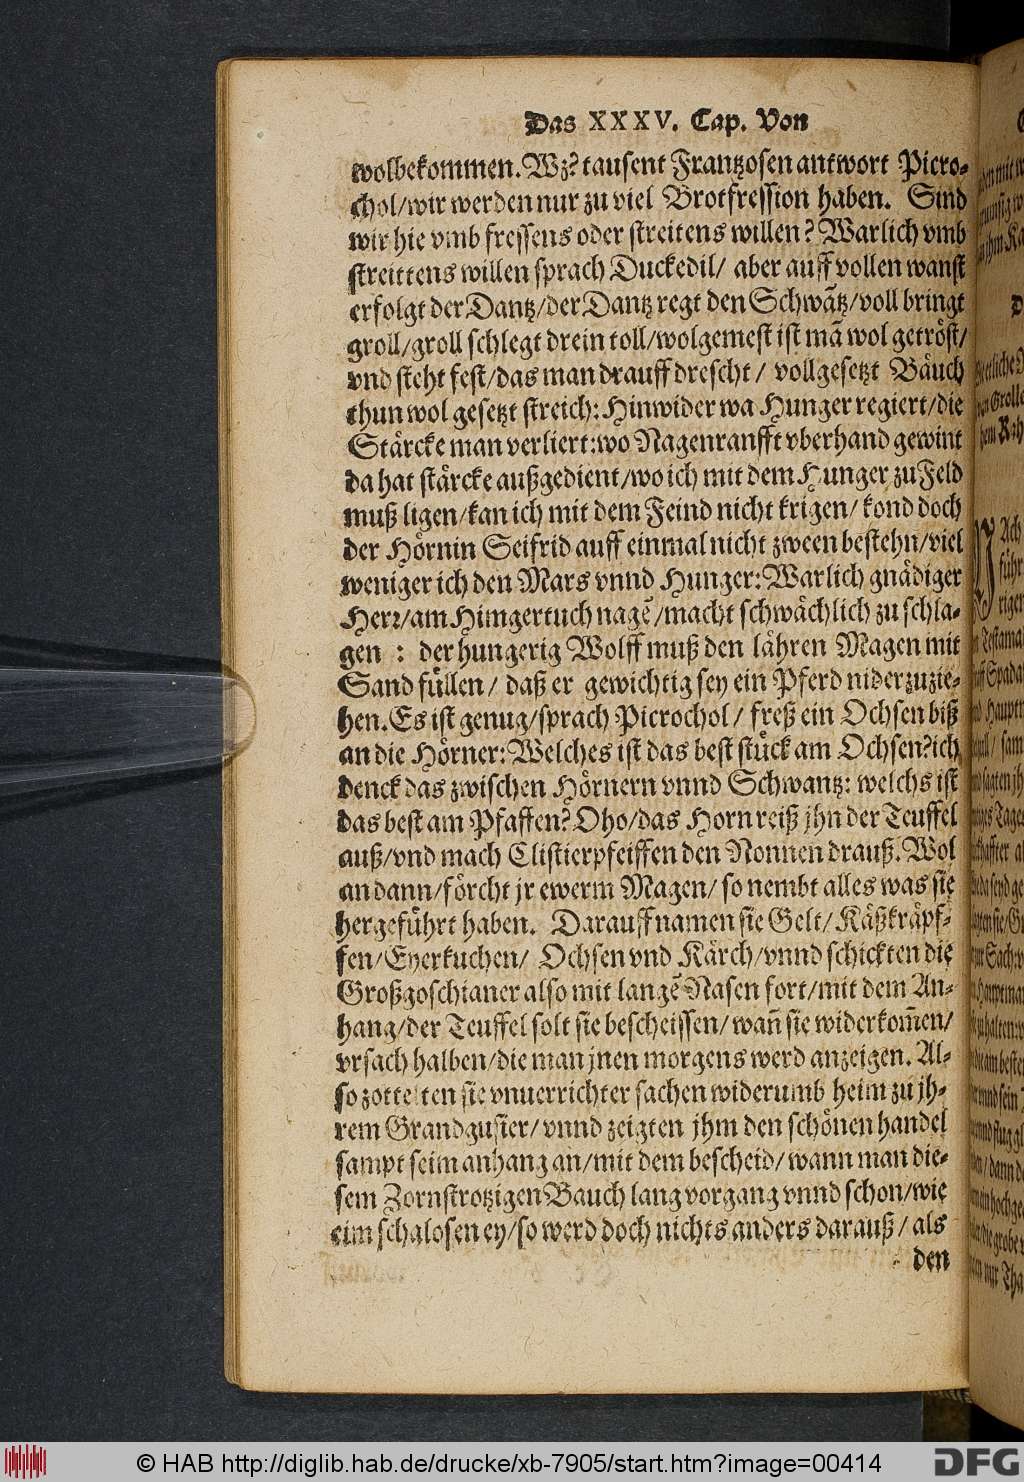 Das XXXV. Cap. Von
wolbekommen. Wz? tausent Frantzosen antwort Picro-
chol/ wir werden nur zu viel Brotfression haben. Sind
wir hie vmb fressens oder streitens willen? Warlich vmb
streittens willen sprach Duckedil/ aber auff vollen wanst
erfolgt der Dantz/ der Dantz regt den Schwãtz/ voll bringt
groll/ groll schlegt drein toll/ wolgemest ist mã wol getröst/
vnd steht fest/ das man drauff drescht/ vollgesetzt Bäuch
thun wol gesetzt streich: Hinwider wa Hunger regiert/ die
Stärcke man verliert: wo Nagenranfft vberhand gewint
da hat stärcke außgedient/ wo ich mit dem Hunger zu Feld
muß ligen/ kan ich mit dem Feind nicht krigen/ kond doch
der Hörnin Seifrid auff einmal nicht zween bestehn/ viel
weniger ich den Mars vnnd Hunger: Warlich gnädiger
Herr/ am Himgertuch nagẽ/ macht schwächlich zu schla-
gen : der hungerig Wolff muß den lähren Magen mit
Sand füllen/ daß er gewichtig sey ein Pferd niderzuzie-
hen. Es ist genug/ sprach Picrochol/ freß ein Ochsen biß
an die Hörner: Welches ist das best stück am Ochsen? ich
denck das zwischen Hörnern vnnd Schwantz: welchs ist
das best am Pfaffen? Oho/ das Horn reiß jhn der Teuffel
auß/ vnd mach Clistierpfeiffen den Nonnen drauß. Wol
an dann/ förcht jr ewerm Magen/ so nembt alles was sie
hergeführt haben. Darauff namen sie Gelt/ Käßkräpf-
fen/ Eyerkuchen/ Ochsen vnd Kärch/ vnnd schickten die
Großgoschianer also mit langẽ Nasen fort/ mit dem An-
hang/ der Teuffel solt sie bescheissen/ wañ sie widerkom̃en/
vrsach halben/ die man jnen morgens werd anzeigen. Al-
so zottelten sie vnuerrichter sachen widerumb heim zu jh-
rem Grandgusier/ vnnd zeigten jhm den schönen handel
sampt seim anhang an/ mit dem bescheid/ wann man die-
sem Zornstrotzigen Bauch lang vorgang vnnd schon/ wie
eim schalosen ey/ so werd doch nichts anders darauß/ als
den
© HAB http://diglib.hab.de/drucke/xb-7905/start.htm?image=00414
DFG